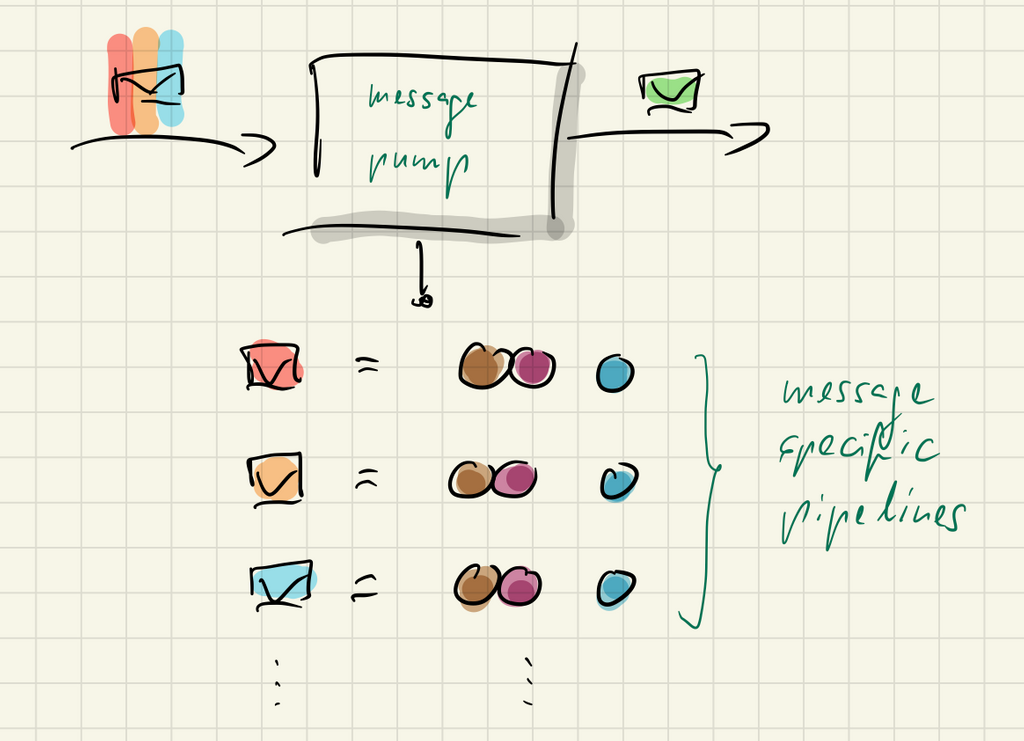 message
pump
=
=
=
message
specific
pipelines